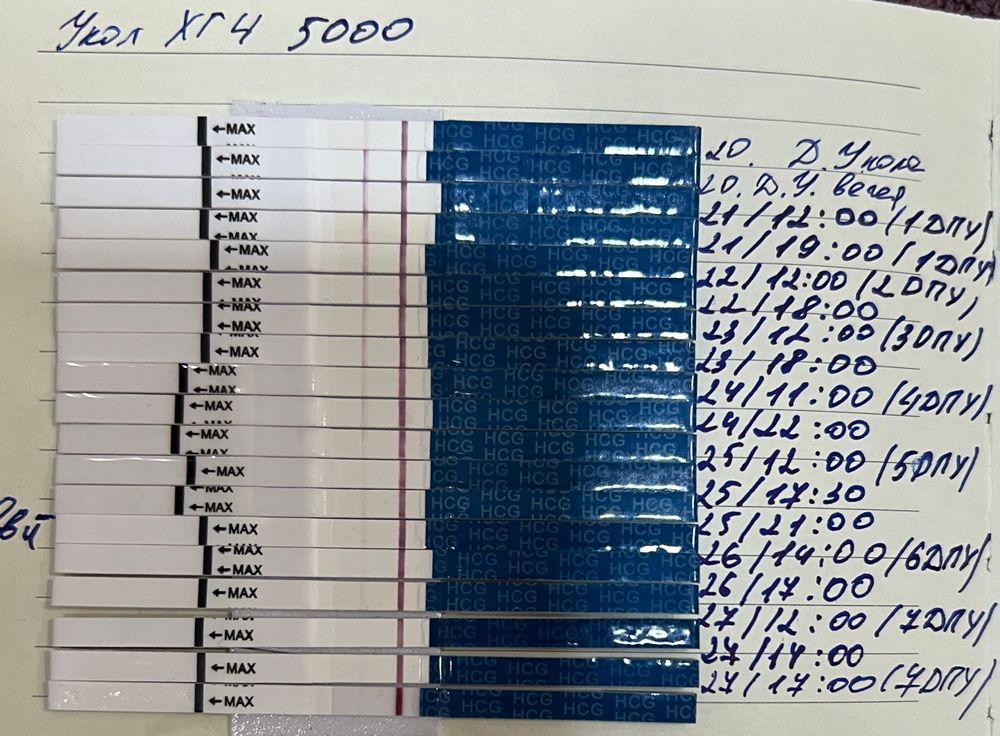 Укол ХГЧ 5000
←MAX HCG 20. Д. Укола
←MAX HCG 20. Д.У. вечер
←MAX HCG 21/12:00 (1ДПУ)
←MAX HCG 21/19:00 (1ДПУ)
←MAX HCG 22/12:00 (2ДПУ)
←MAX HCG 22/18:00
←MAX HCG 23/12:00 (3ДПУ)
←MAX HCG 23/18:00
←MAX HCG 24/11:00 (4ДПУ)
←MAX HCG 24/22:00
←MAX HCG 25/12:00 (5ДПУ)
←MAX HCG 25/17:30
←MAX HCG 25/21:00
←MAX HCG 26/14:00 (6ДПУ)
←MAX HCG 26/17:00
←MAX HCG 27/12:00 (7ДПУ)
←MAX HCG 27/14:00
←MAX HCG 27/17:00 (7ДПУ)